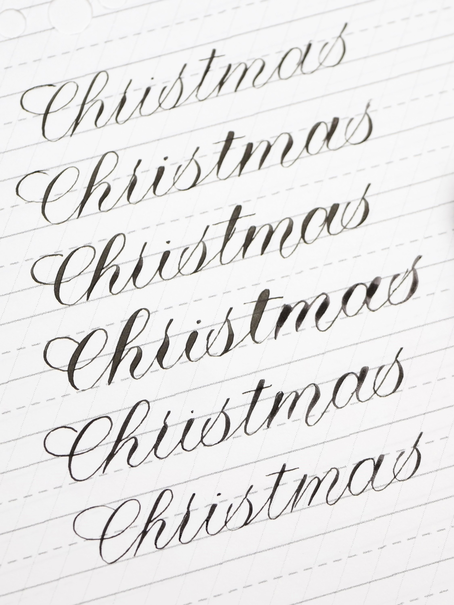 Christmas
Christmas
Christmas
Christmas
Christmas
Christmas